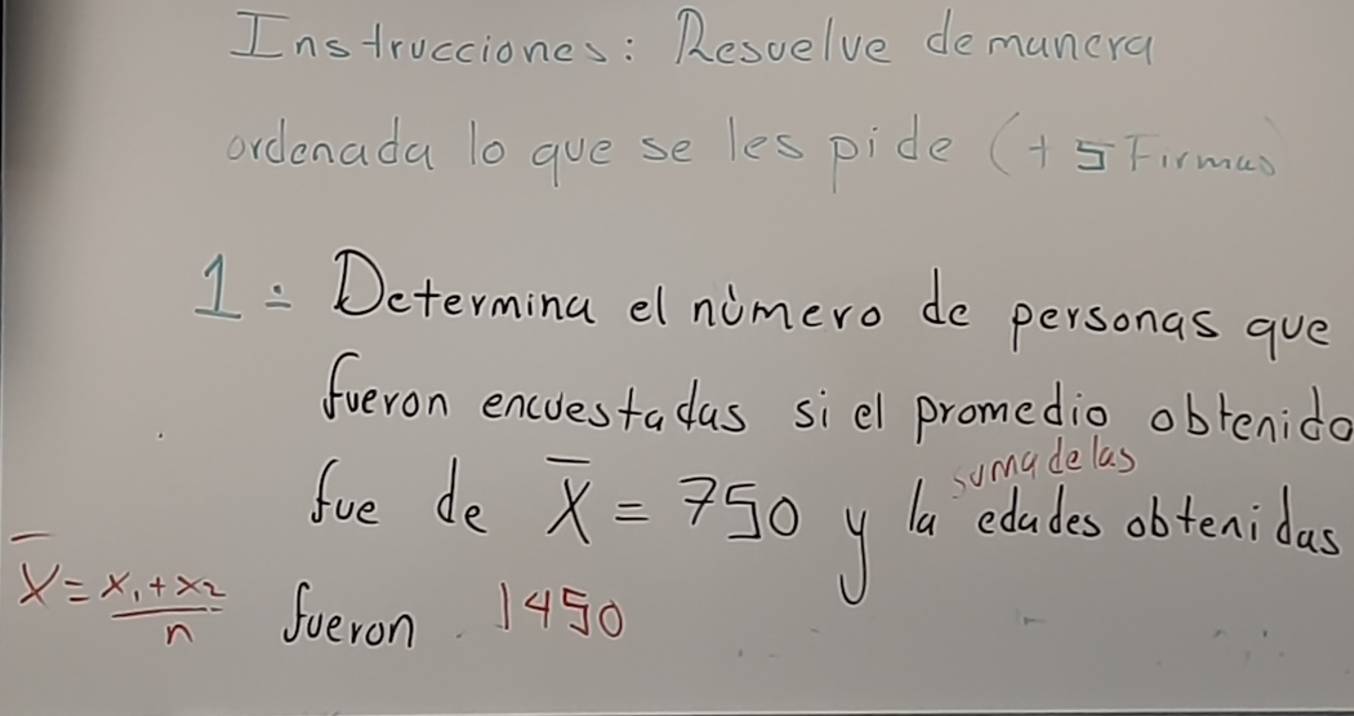 Instrucciones: Resuelve de manera
ordenada lo que se les pide (+5 Firmas)
1= Determina el nùmero de personas que
fueron encuestadas si el promedio obtenido
suma de las
fue de X̅ = 750 y la edades obtenidas
X̅ = x₁+x₂/n fueron 1450